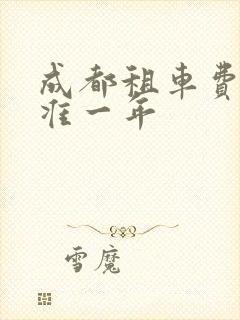 成都租車費
准一年
雪魔